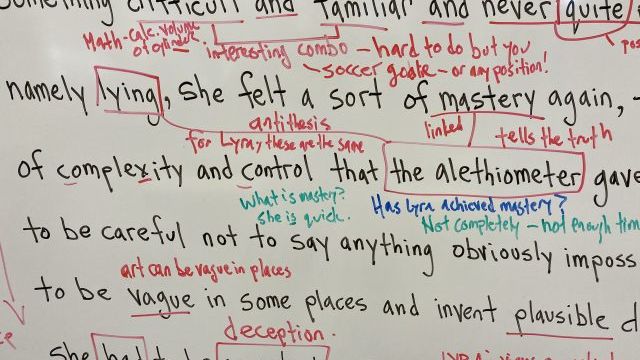 something difficult and familiar and never quite
Math-calc. volume of cylinder
interesting combo - hard to do but you
pos
soccer goalie - or any position!
namely lying, she felt a sort of mastery again,
antithesis
linked
tells the truth
for Lyra, these are the same
of complexity and control that the alethiometer gave
What is mastery?
She is quick.
Has Lyra achieved mastery?
Not completely - not enough tim
to be careful not to say anything obviously imposs
art can be vague in places
to be vague in some places and invent plausible d
deception.
She had to